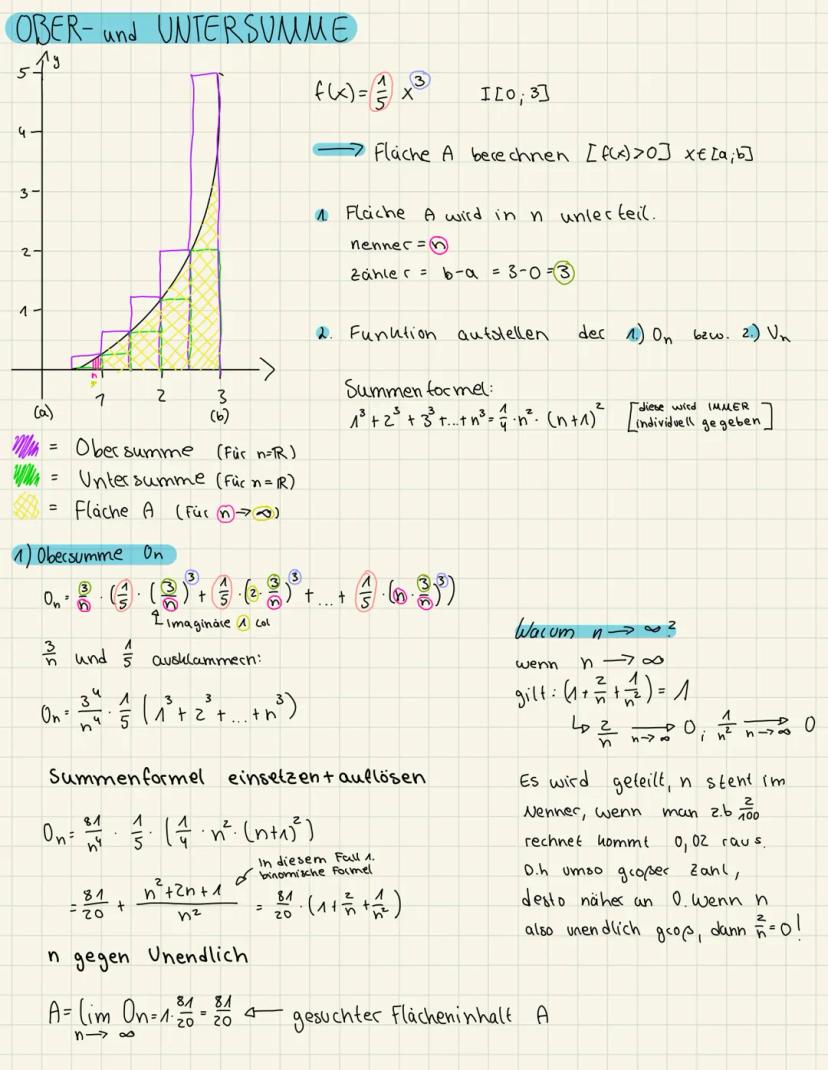 OBER- und UNTERSUMME
y
5
4
3
2
1
n
1 2 3
(a) (b)
f(x) = 1/5 x³ I[0;3]
→ Fläche A berechnen [f(x)>0] x∈[a;b]
1. Fläche A wird in n unterteil.
nenner = n
zähler = b-a = 3-0 = 3
2. Funktion aufstellen der 1.) On bzw. 2.) Un
Summenformel:
1³ + 2³ + 3³ +...+ n³ = 1/4 · n² · (n+1)² [diese wird IMMER individuell gegeben]
= Obersumme (Für n=ℝ)
= Untersumme (Für n=ℝ)
= Fläche A (Für n→∞)
1) Obersumme On
On = 3/n · (1/5 · (3/n)³ + 1/5 · (2 · 3/n)³ + ... + 1/5 · (n · 3/n)³)
Imaginäre 1 lol
3/n und 1/5 ausklammern:
On = 3⁴/n⁴ · 1/5 (1³ + 2³ + ... + n³)
Summenformel einsetzen + auflösen
On = 81/n⁴ · 1/5 · (1/4 · n² · (n+1)²)
In diesem Fall 1.
binomische Formel
= 81/20 + n²+2n+1/n² = 81/20 · (1 + 2/n + 1/n²)
n gegen Unendlich
A = lim n→∞ On = 1 · 81/20 = 81/20 ← gesuchter Flächeninhalt A
Warum n → ∞?
wenn n → ∞
gilt: (1 + 2/n + 1/n²) = 1
↳ 2/n n→∞ → 0 ; 1/n² n→∞ → 0
Es wird geteilt, n steht im
Nenner, wenn man z.b 2/100
rechnet kommt 0,02 raus.
D.h umso großer Zahl,
desto näher an 0. Wenn n
also unendlich groß, dann 2/n = 0!